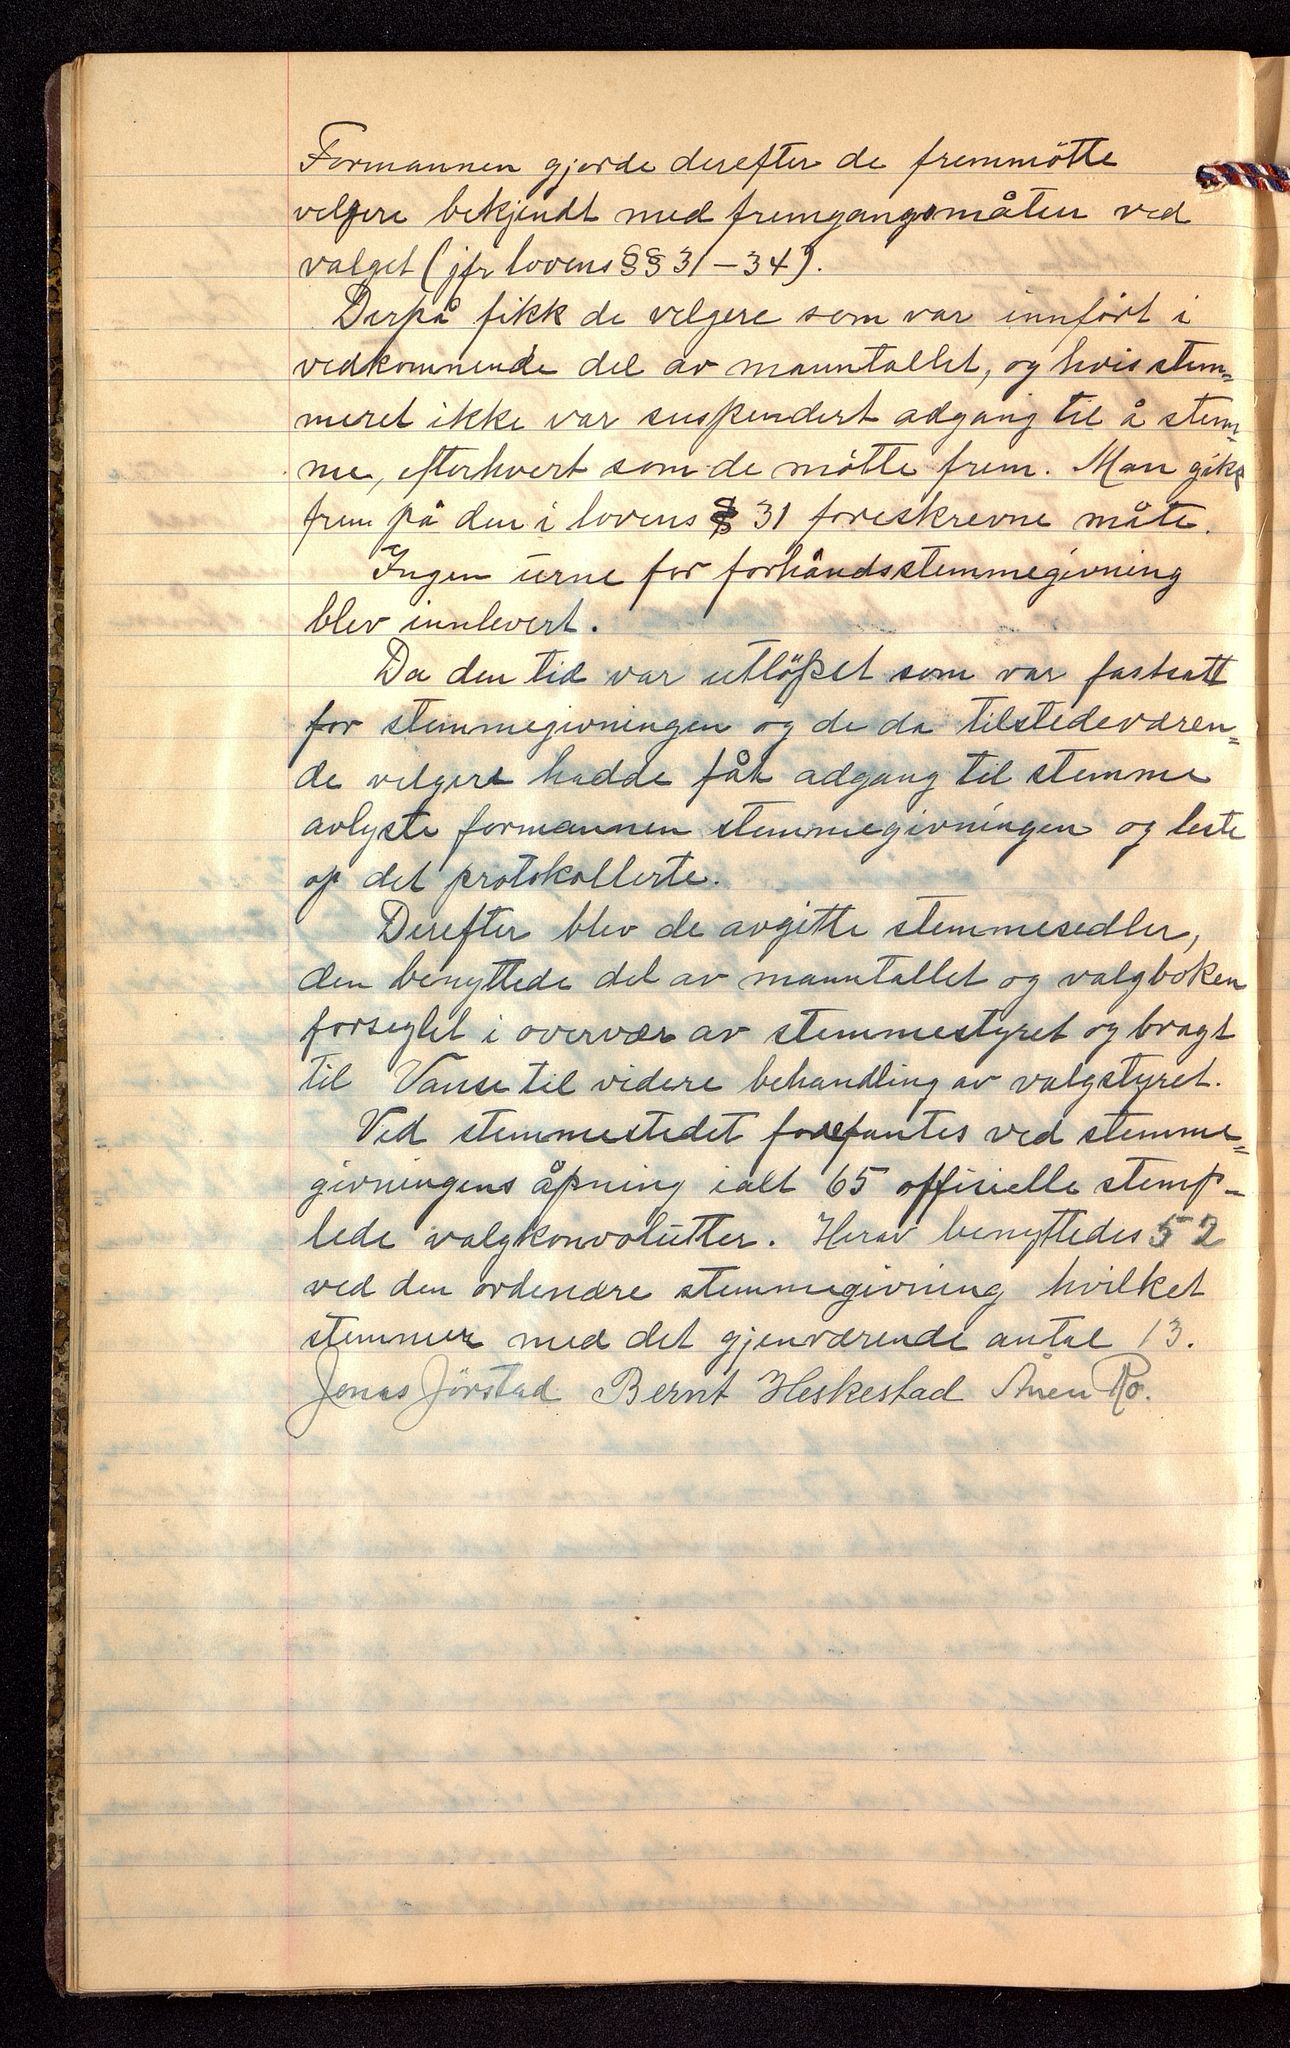 Formannen gjorde derefter de fremmötte
velgere bekjendt med fremgangsmåten ved
valget (jfr lovens §§ 31-34).
Derpå fikk de velgere som var innført i
vedkommende del av manntallet, og hvis stem=
meret ikke var suspendert adgang til å stem=
me, efterhvert som de mötte frem. Man gikk
frem på den i lovens § 31 foreskrevne måte.
Ingen urne for forhåndsstemmegivning
blev innlevert.
Da den tid var utlöpet som var fastsatt
for stemmegivningen og de da tilstedeværen=
de velgere hadde fåt adgang til stemme
avlyste formannen stemmegivningen og leste
op det protokollerte.
Derefter blev de avgitte stemmesedler,
den benyttede del av manntallet og valgboken
forseglet i overvær av stemmestyret og bragt
til Vanse til videre behandling av valgstyret.
Ved stemmestedet forefantes ved stemme=
givningens åpning ialt 65 offisielle stemp-
lede valgkonvolutter. Herav benyttedes 52
ved den ordenære stemmegivning hvilket
stemmer med det gjenværende antal 13.
Jonas Jörstad Bernt Heskestad Ånen Ro.